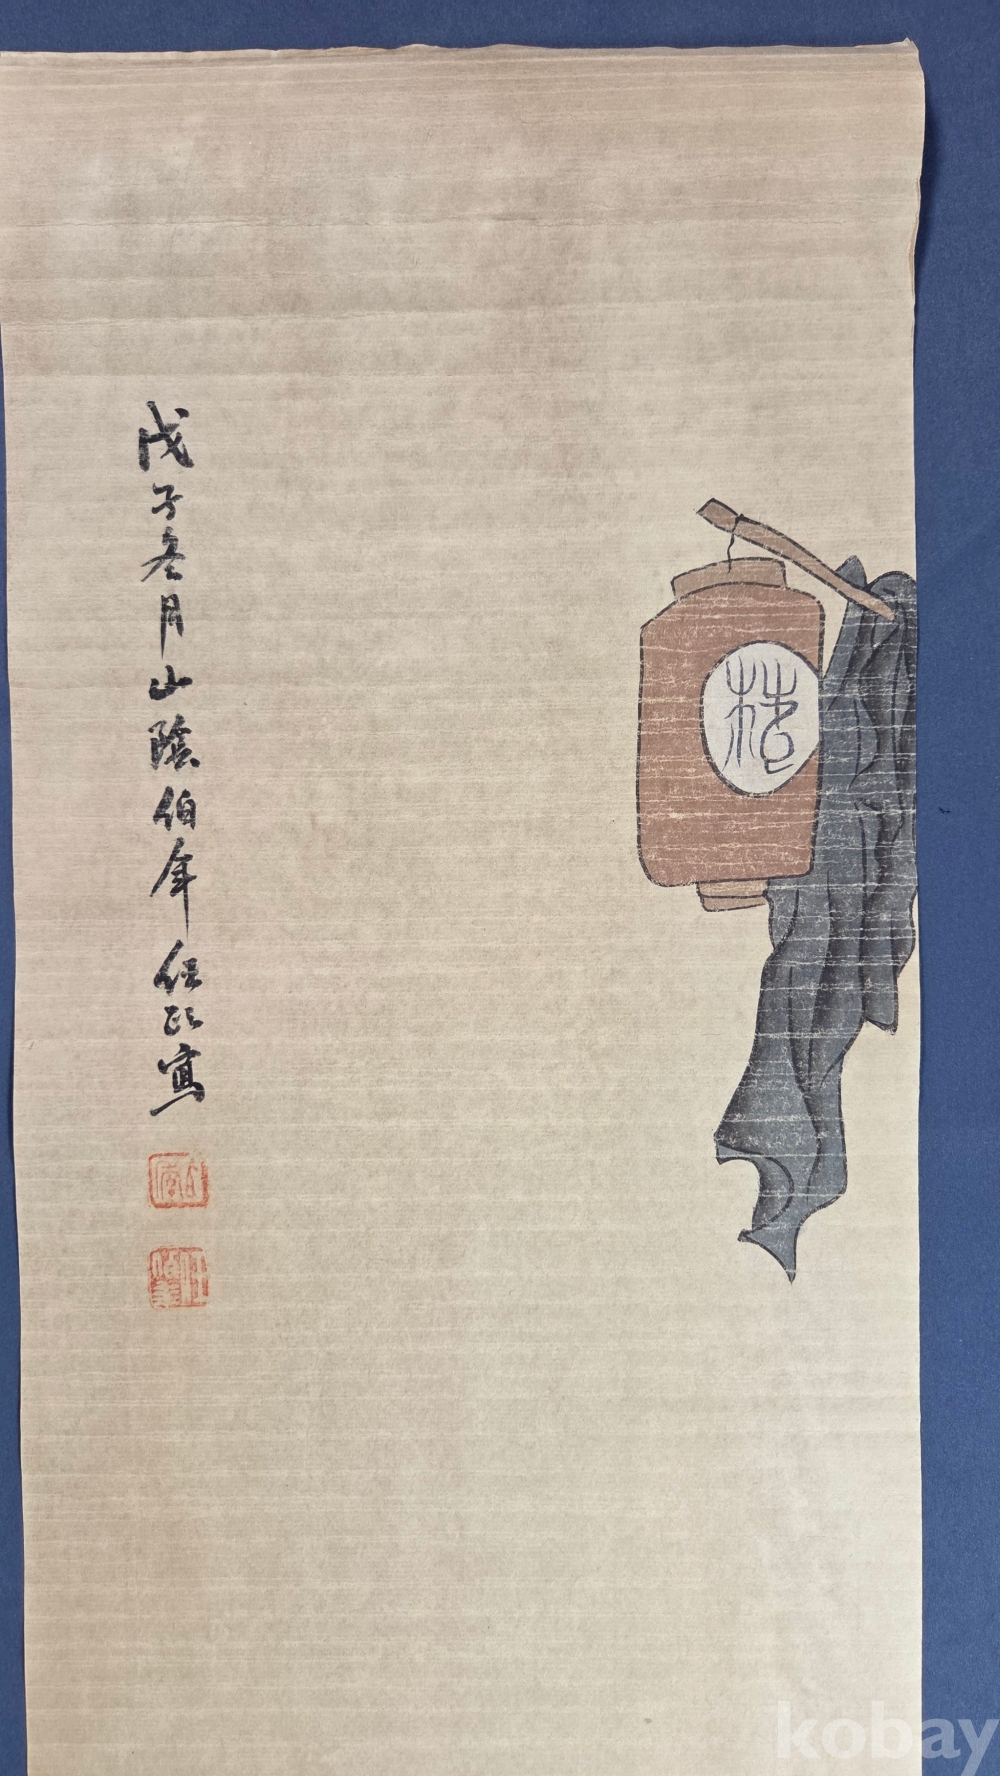 戊子冬月山陰伯年任頤寫
kobay